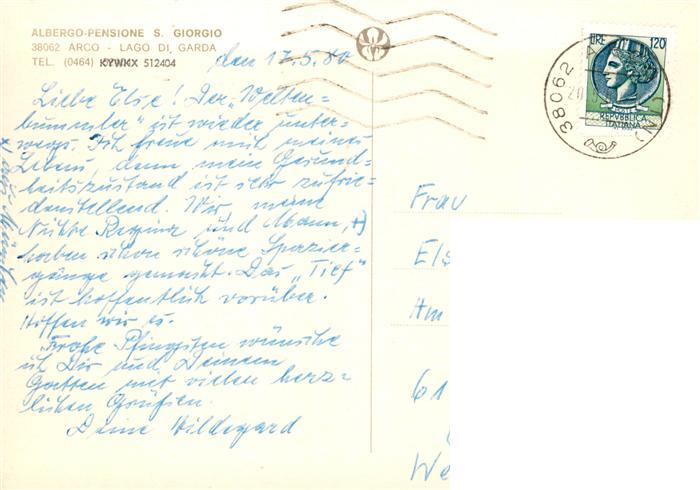 ALBERGO-PENSIONE S. GIORGIO
38062 ARCO - LAGO DI GARDA
TEL. (0464) 512404
den 17.5.80
Liebe Else! Der „Welten-
bummler" ist wieder unter-
wegs. Ich freue mich meines
Lebens, denn mein Gesund-
heitszustand ist sehr zufrie-
denstellend. Wir, meine
Nichte Regina und Mann, +)
haben schon schöne Spazier-
gänge gemacht. Das „Tief"
ist hoffentlich vorüber.
Hoffen wir es.
Frohe Pfingsten wünsche
ich Dir und Deinem
Gatten mit vielen herz-
lichen Grüßen.
Deine Hildegard
LIRE 120
REPVBBLICA
ITALIANA
38062
Frau
Els
Am
61
We